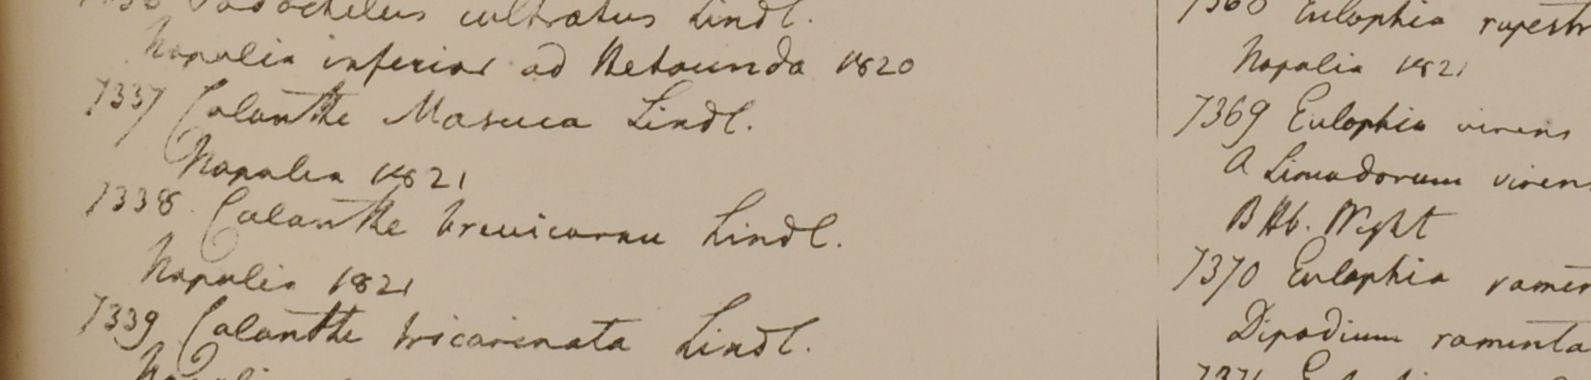 Podochilus cultratus Lindl.
Napalia inferior ad Hetounda 1820
7337 Calanthe Masuca Lindl.
Napalia 1821
7338 Calanthe brevicornu Lindl.
Napalia 1821
7339 Calanthe tricarinata Lindl.
7368 Eulophia rupestr
Napalia 1821
7369 Eulophia virens
A Limodorum viren
B Hb. Wight
7370 Eulophia ramen
Dipodium ramenta